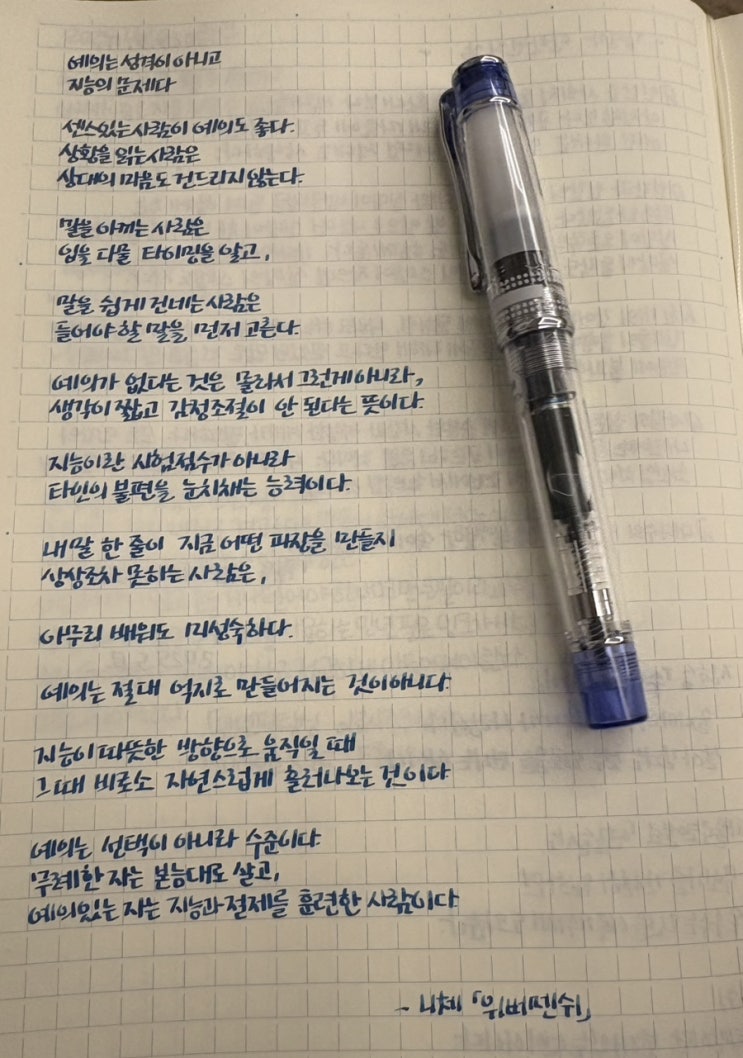 예의는 성격이 아니고
지능의 문제다
센스있는 사람이 예의도 좋다.
상황을 읽는 사람은
상대의 마음도 건드리지 않는다.
말을 아끼는 사람은
입을 다물 타이밍을 알고,
말을 쉽게 건네는 사람은
들어야 할 말을 먼저 고른다.
예의가 없다는 것은 몰라서 그런게 아니라,
생각이 짧고 감정조절이 안 된다는 뜻이다.
지능이란 시험점수가 아니라
타인의 불편을 눈치채는 능력이다.
내 말 한 줄이 지금 어떤 파장을 만들지
상상조차 못하는 사람은,
아무리 배워도 미성숙하다.
예의는 절대 억지로 만들어지는 것이 아니다.
지능이 따뜻한 방향으로 움직일 때
그때 비로소 자연스럽게 흘러나오는 것이다
예의는 선택이 아니라 수준이다.
무례한 자는 본능대로 살고,
예의있는 자는 지능과 절제를 훈련한 사람이다.
- 니체 「위버멘쉬」